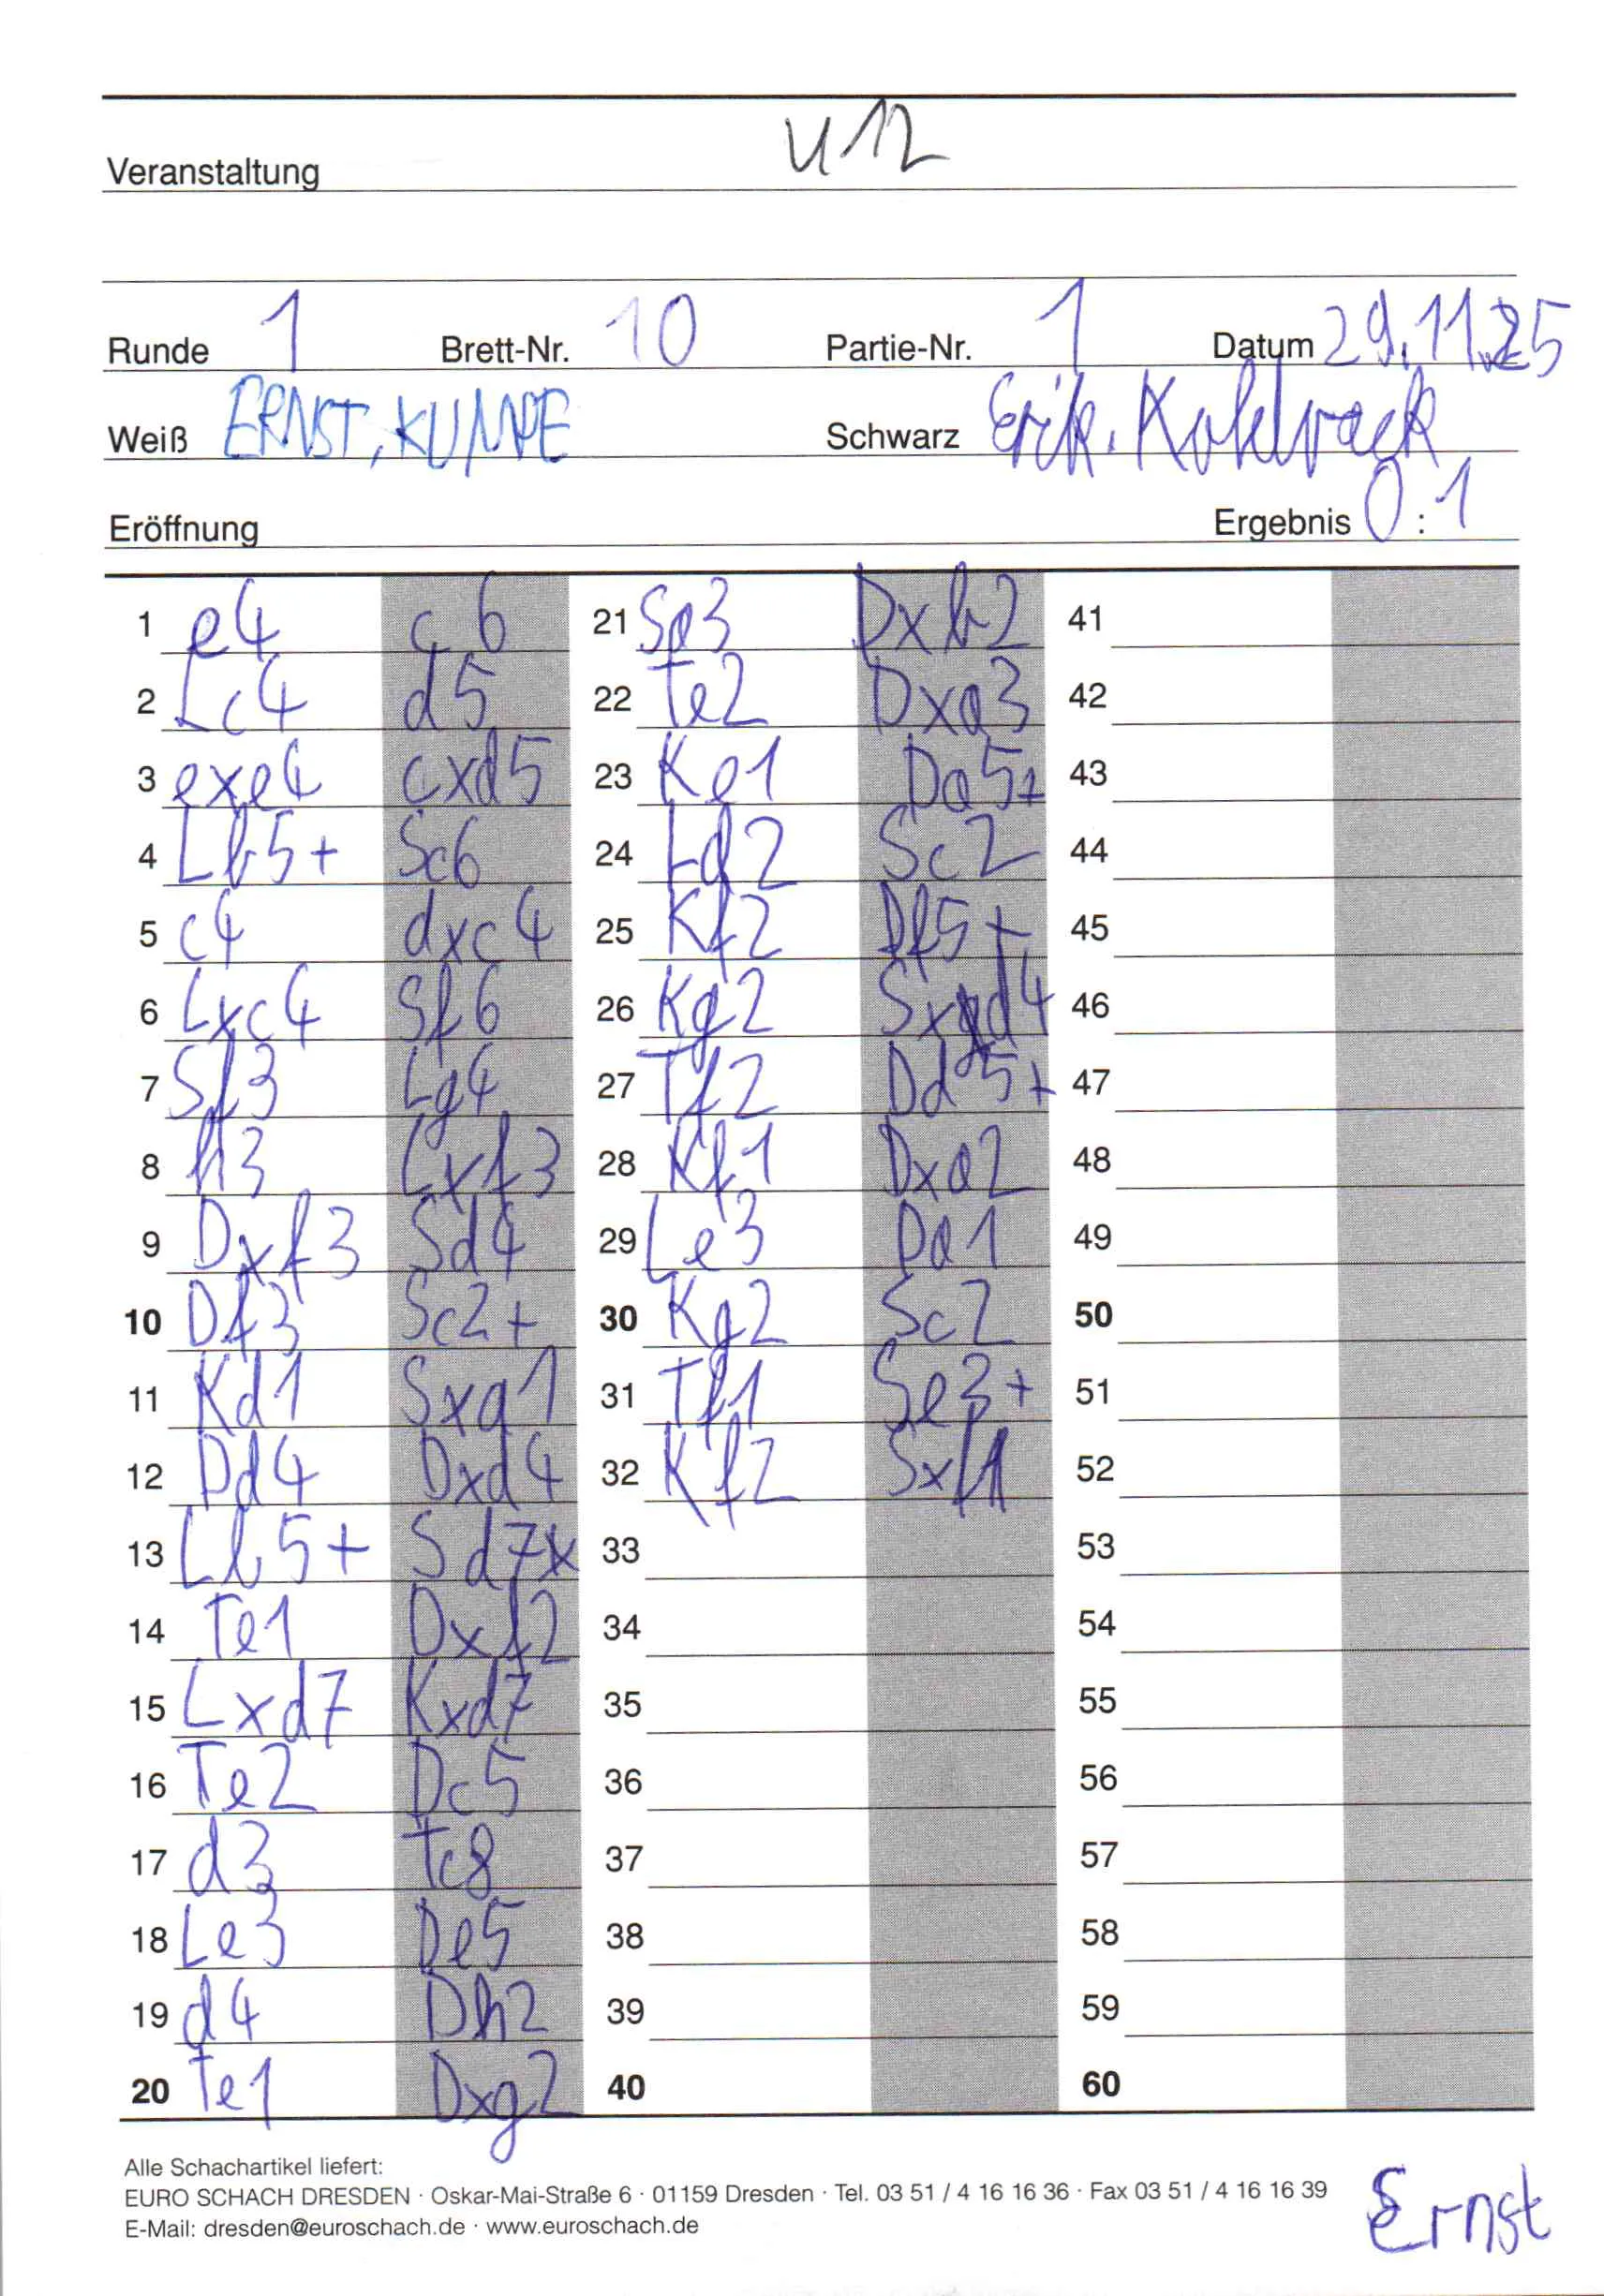 U12
Veranstaltung
Runde 1 Brett-Nr. 10 Partie-Nr. 1 Datum 29.11.25
Weiß ERNST, KUMPE Schwarz Erik.
Eröffnung Ergebnis 0 : 1
1 e4 c6 21 Se3 Dxb2 41
2 Lc4 d5 22 Te2 Dxa3 42
3 exe4 cxd5 23 Ke1 Da5+ 43
4 Lb5+ Sc6 24 Ld2 Sc2 44
5 c4 dxc4 25 Kf2 Df5+ 45
6 Lxc4 Sf6 26 Kg2 Sxd4 46
7 Sf3 Lg4 27 Tf2 Dd5+ 47
8 h3 Lxf3 28 Kf1 Dxa2 48
9 Dxf3 Sd4 29 Le3 Da1 49
10 Df3 Sc2+ 30 Kg2 Sc2 50
11 Kd1 Sxa1 31 Tf1 Se3+ 51
12 Dd4 Dxd4 32 Kf2 Sxf1 52
13 Lb5+ Sd7x 33 53
14 Te1 Dxf2 34 54
15 Lxd7 Kxd7 35 55
16 Te2 Dc5 36 56
17 d3 Tc8 37 57
18 Le3 De5 38 58
19 d4 Dh2 39 59
20 Te1 Dxg2 40 60
Alle Schachartikel liefert:
EURO SCHACH DRESDEN · Oskar-Mai-Straße 6 · 01159 Dresden · Tel. 03 51 / 4 16 16 36 · Fax 03 51 / 4 16 16 39
E-Mail: dresden@euroschach.de · www.euroschach.de
Ernst